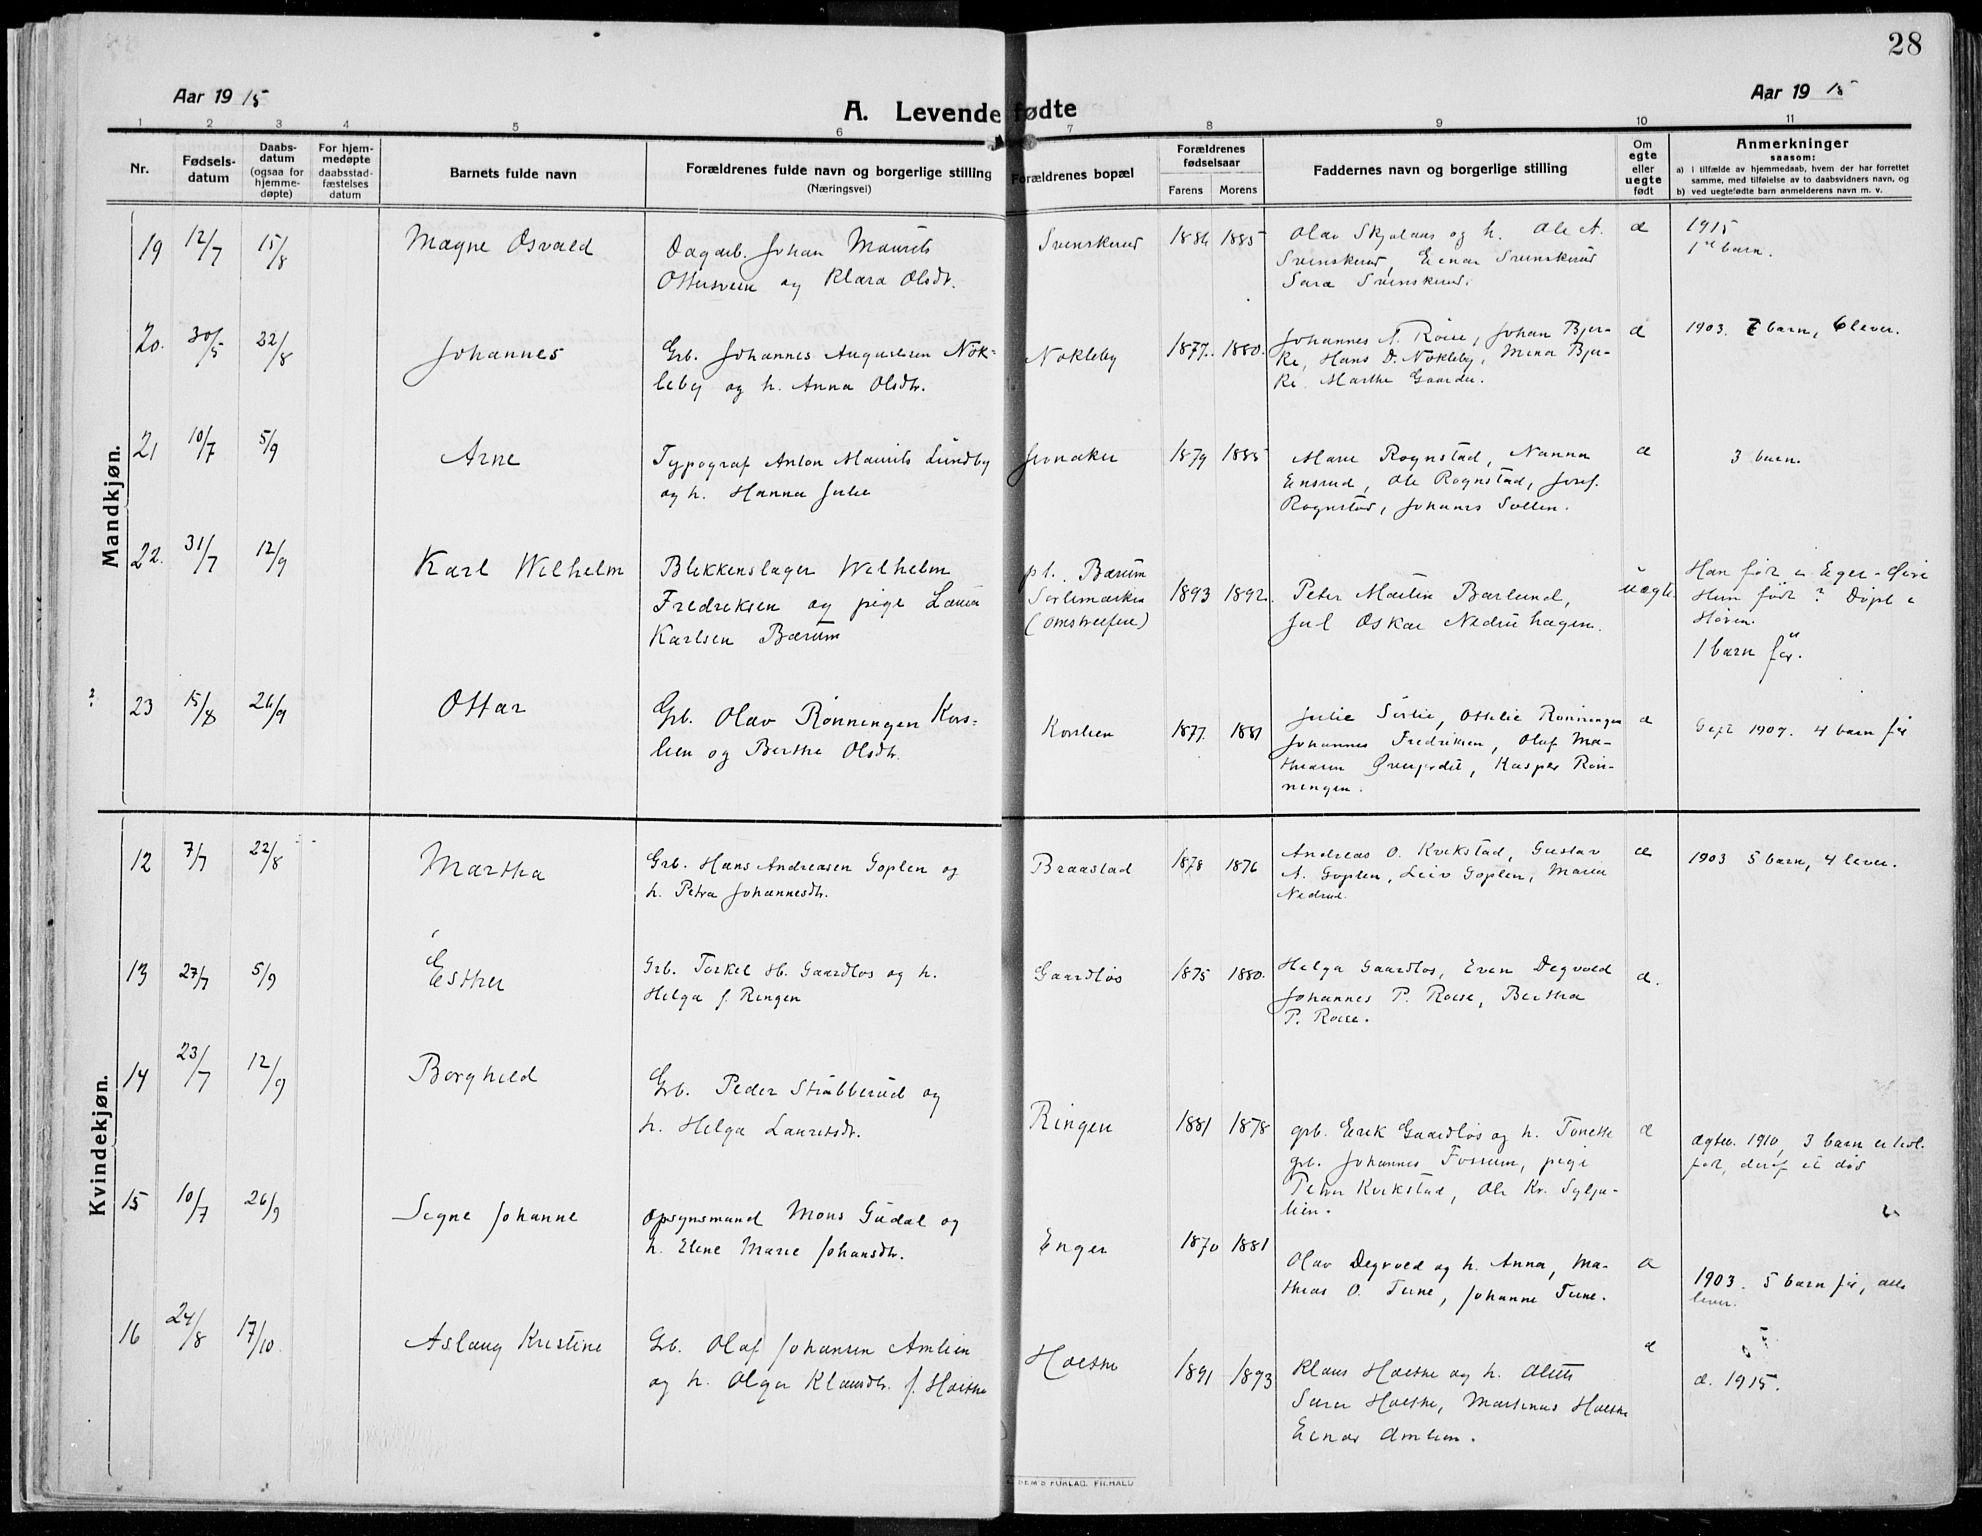 28
Aar 19 15
Aar 19 15
A. Levende fødte
1 2 3 4 5 6 7 8 9 10 11
Nr.
Fødsels-
datum
Daabs-
datum
(ogsaa for
hjemme-
døpte)
For hjem-
medøpte
daabsstad-
fæstelses
datum
Barnets fulde navn
Forældrenes fulde navn og borgerlige stilling
(Næringsvei)
Forældrenes bopæl
Forældrenes
fødselsaar
Farens Morens
Faddernes navn og borgerlige stilling
Om
egte
eller
uegte
født
Anmerkninger
saasom:
a) i tilfælde av hjemmedaab, hvem der har forrettet
samme, med tilføielse av to daabsvidners navn, og
b) ved uegtefødte barn anmelderens navn m. v.
Mandkjøn.
19 12/7 15/8 Magne Osvald
Dagarb. Johan Maurits
Ottersveen og Klara Olsdt.
Svenskerud 1886 1885
Olav og h. Ole A.
Svenskerud, Einar Svenskerud
Sara Svenskerud.
æ
1915
1ste barn.
20. 30/5 22/8 Johannes
Grb. Johannes Augustsen Nøk-
leby og h. Anna Olsdt.
Nøkleby 1877. 1880.
Johannes A. Roise, Johan Bjer-
ke, Hans D. Nøkleby, Mina Bjer-
ke. Marthe Gaarder.
æ
1903. 7 barn, 6 lever.
21 10/7 5/9 Arne
Typograf Anton Maurits Lundby
og h. Hanna Julie
Jevnaker 1879 1885
Marie Rognstad, Nanna
Ensrud, Ole Rognstad, Josef
Rognstad, Johanes Sollien.
æ
3 barn.
22. 31/7 12/9 Karl Wilhelm
Blikkenslager Wilhelm
Fredriksen og pige Laura
Karlsen Bærum
pt. Bærum
Sørlimarken
(omstreifere)
1893 1892.
Peter Martin Barlund,
Jul Oskar Nedrehagen.
uegte.
Han født i Eger-Øvre
Hun født? Døpt i
Hoven.
1 barn før.
23 15/8 26/9 Ottar
Grb. Olav Rønningen Kors-
lien og Berthe Olsdt.
Korslien 1877. 1881
Julie Sørlie, Ottilie Rønningen
Johannes Fredriksen, Olaf Ma-
thiasen Øvergerdet, Kasper Røn-
ningen.
æ
Gift 1907. 4 barn før
Kvindekjøn.
12 7/7 22/8 Martha
Grb. Hans Andreasen Goplen og
h. Petra Johannesdt.
Braastad 1878 1876
Andreas O. Kvikstad, Gustav
A. Goplen, Leiv Goplen, Maria
Nedrud.
æ
1903 5 barn, 4 lever.
13 27/7 5/9 Esther
Grb. Torkel H. Gaardløs og h.
Helga f. Ringen
Gaardløs 1875 1880.
Helga Gaardløs, Even Degvold
Johannes P. Roise, Bertha
P. Roise.
æ.
14 23/7 12/9 Borghild
Grb. Peder Stubberud og
h. Helga Lauritsdt.
Ringen 1881 1878
grb. Erik Gaardløs og h. Tonette
grb. Johannes Fossum, pige
Petra Kvikstad, Ole Kr. Sylju-
lien.
æ
ægtev. 1910, 3 barn er levl.
født, deraf et død
15 10/7 26/9 Signe Johanne
Opsynsmand Mons Gudal og
h. Eline Marie Johansdt.
Enger 1870 1881
Olav Degvold og h. Anna, Ma-
thias O. Tune, Johanne Tune.
æ
1903. 5 barn før, alle
lever.
16 24/8 17/10 Aslaug Kristine
Grb. Olaf Johansen Amlien
og h. Olga Klausdt. f. Hoitke
1891 1893
Klaus og h. Olette
Einar Amlien.
æ
æ. 1915.
FORLAG.